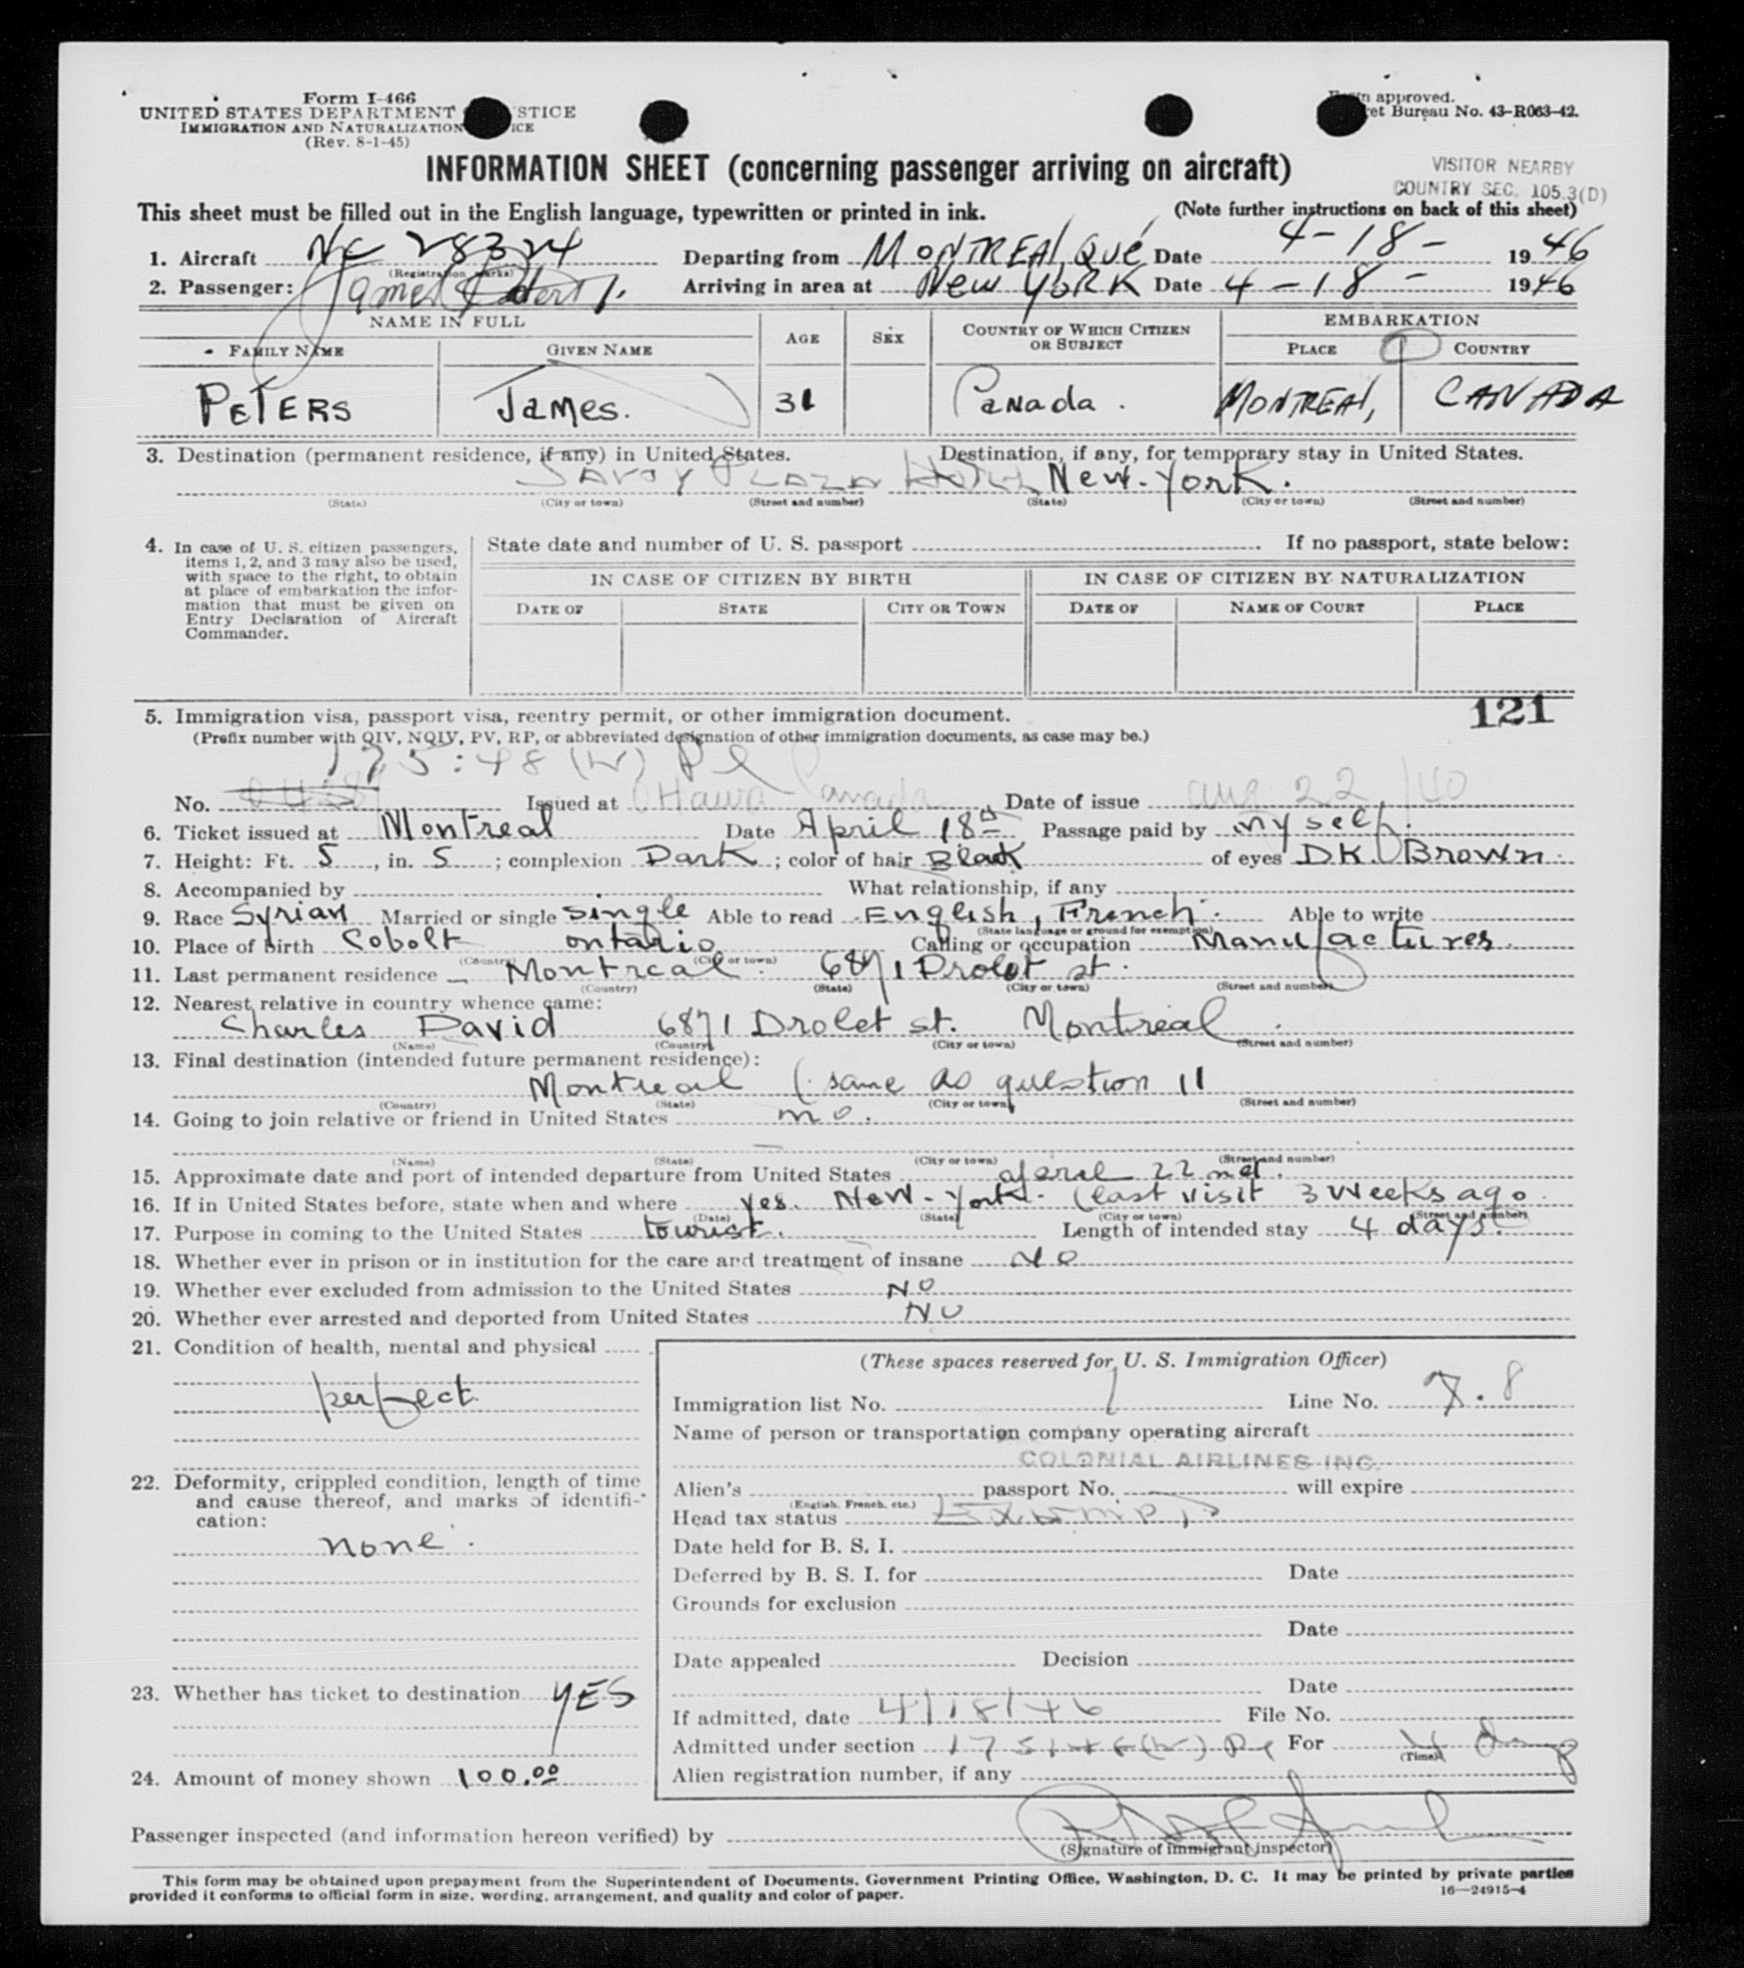 Form I-466
UNITED STATES DEPARTMENT STICE
IMMIGRATION AND NATURALIZATION ICE
(Rev. 8-1-45)
approved.
et Bureau No. 43-R063-42.
INFORMATION SHEET (concerning passenger arriving on aircraft)
VISITOR NEARBY
COUNTRY SEC. 105.3(D)
This sheet must be filled out in the English language, typewritten or printed in ink. (Note further instructions on back of this sheet)
1. Aircraft NC 28324 Departing from MONTREAL QUÉ Date 4-18- 1946
(Registration marks)
2. Passenger: James Peters Arriving in area at New YORK Date 4-18- 1946
NAME IN FULL AGE SEX COUNTRY OF WHICH CITIZEN OR SUBJECT EMBARKATION
FAMILY NAME GIVEN NAME PLACE COUNTRY
PETERS James. 31 Canada. MONTREAL, CANADA
3. Destination (permanent residence, if any) in United States. Destination, if any, for temporary stay in United States.
SAVOY PLAZA Hotel New-York.
(State) (City or town) (Street and number) (State) (City or town) (Street and number)
4. In case of U. S. citizen passengers, items 1, 2, and 3 may also be used, with space to the right, to obtain at place of embarkation the information that must be given on Entry Declaration of Aircraft Commander.
State date and number of U. S. passport If no passport, state below:
IN CASE OF CITIZEN BY BIRTH IN CASE OF CITIZEN BY NATURALIZATION
DATE OF STATE CITY OR TOWN DATE OF NAME OF COURT PLACE
121
5. Immigration visa, passport visa, reentry permit, or other immigration document.
(Prefix number with QIV, NQIV, PV, RP, or abbreviated designation of other immigration documents, as case may be.)
175:48 (W) Pl
No. Issued at Ottawa Canada Date of issue Aug 22/40
6. Ticket issued at Montreal Date April 18th Passage paid by myself.
7. Height: Ft. 5, in. 5; complexion Dark; color of hair Black of eyes DK. Brown.
8. Accompanied by What relationship, if any
9. Race Syrian Married or single single Able to read English, French. Able to write
(State language or ground for exemption)
10. Place of birth Cobolt ontario Calling or occupation Manufactures.
(Country) (City or town)
11. Last permanent residence — Montreal. 6871 Drolet st.
(Country) (State) (City or town) (Street and number)
12. Nearest relative in country whence came:
Charles David 6871 Drolet st. Montreal.
(Name) (Country) (City or town) (Street and number)
13. Final destination (intended future permanent residence):
Montreal (same as question 11
(Country) (State) (City or town) (Street and number)
14. Going to join relative or friend in United States no.
(Name) (State) (City or town) (Street and number)
15. Approximate date and port of intended departure from United States april 22nd.
16. If in United States before, state when and where yes. New-York. (last visit 3 weeks ago.
(Date) (State) (City or town) (Street and number)
17. Purpose in coming to the United States tourist. Length of intended stay 4 days.
18. Whether ever in prison or in institution for the care and treatment of insane NO
19. Whether ever excluded from admission to the United States NO
20. Whether ever arrested and deported from United States NO
21. Condition of health, mental and physical
perfect
22. Deformity, crippled condition, length of time and cause thereof, and marks of identification:
none.
23. Whether has ticket to destination YES
24. Amount of money shown 100.00
(These spaces reserved for U. S. Immigration Officer)
Immigration list No. 1 Line No. 7. 8
Name of person or transportation company operating aircraft
COLONIAL AIRLINES INC.
Alien's passport No. will expire
(English, French, etc.)
Head tax status Exempt
Date held for B. S. I.
Deferred by B. S. I. for Date
Grounds for exclusion
Date
Date appealed Decision
Date
If admitted, date 4/18/46 File No.
Admitted under section 175:48 (W) Pl For 4 days
(Time)
Alien registration number, if any
Passenger inspected (and information hereon verified) by
(Signature of immigrant inspector)
This form may be obtained upon prepayment from the Superintendent of Documents, Government Printing Office, Washington, D. C. It may be printed by private parties
provided it conforms to official form in size, wording, arrangement, and quality and color of paper. 16—24915-4